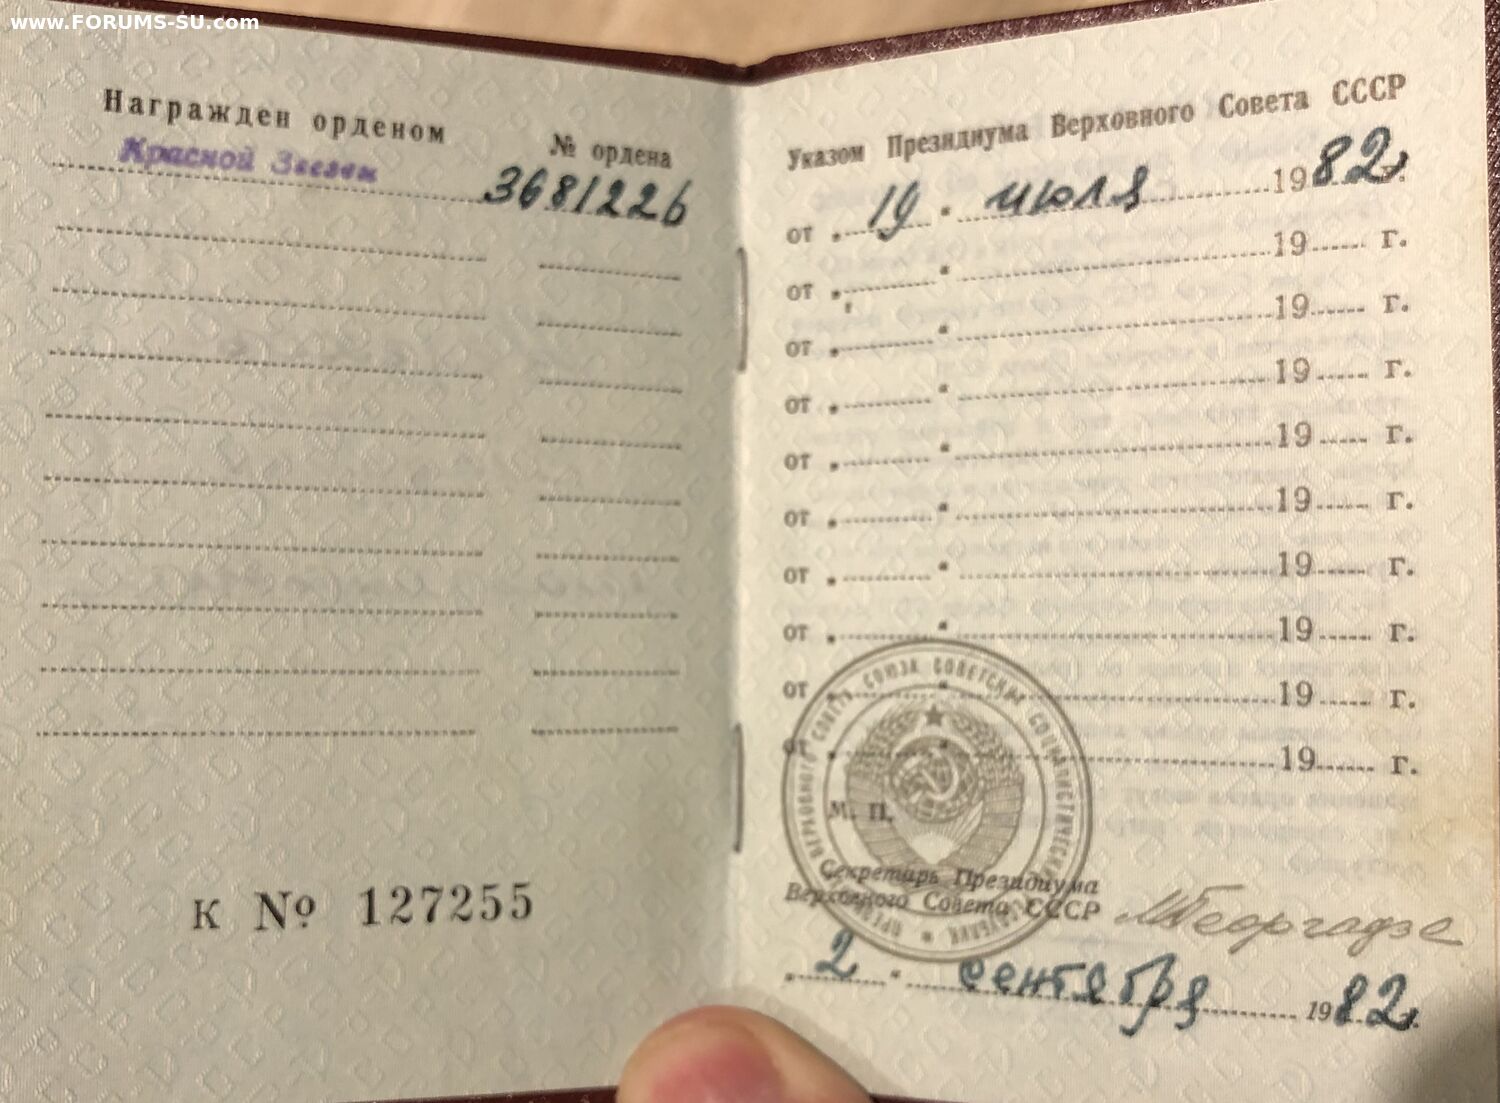 www.FORUMS-SU.com
Награжден орденом
№ ордена
Красной Звезды
3681226
К № 127255
Указом Президиума Верховного Совета СССР
от „19" июля 1982г.
от „ " 19 г.
от „ " 19 г.
от „ " 19 г.
от „ " 19 г.
от „ " 19 г.
от „ " 19 г.
от „ " 19 г.
от „ " 19 г.
от „ " 19 г.
М. П.
ПРЕЗИДИУМ ВЕРХОВНОГО СОВЕТА СОЮЗА СОВЕТСКИХ СОЦИАЛИСТИЧЕСКИХ РЕСПУБЛИК
Секретарь Президиума
Верховного Совета СССР
МГеоргадзе
„2" сентября 1982г.